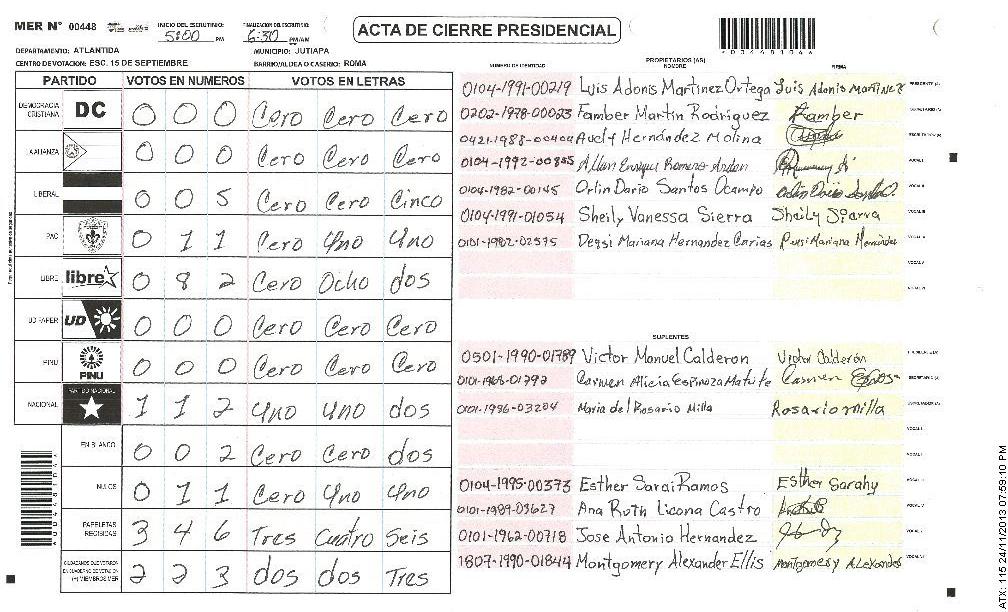 MER N° 00448 INICIO DEL ESCRUTINIO: 5:00 PM FINALIZACION DEL ESCRUTINIO: 6:30 PM/AM
ACTA DE CIERRE PRESIDENCIAL
DEPARTAMENTO: ATLANTIDA MUNICIPIO: JUTIAPA
CENTRO DE VOTACION: ESC. 15 DE SEPTIEMBRE BARRIO/ALDEA O CASERIO: ROMA
PARTIDO VOTOS EN NUMEROS VOTOS EN LETRAS
DEMOCRACIA CRISTIANA DC 0 0 0 Cero Cero Cero
AALIANZA 0 0 0 Cero Cero Cero
LIBERAL 0 0 5 Cero Cero Cinco
PAC 0 1 1 Cero Uno Uno
LIBRE libre 0 8 2 Cero Ocho dos
UD FAPER UD 0 0 0 Cero Cero Cero
PINU PINU 0 0 0 Cero Cero Cero
NACIONAL PARTIDO NACIONAL 1 1 2 Uno Uno dos
EN BLANCO 0 0 2 Cero Cero dos
NULOS 0 1 1 Cero Uno Uno
PAPELETAS RECIBIDAS 3 4 6 Tres Cuatro Seis
CIUDADANOS QUE VOTARON EN CUADERNO DE VOTACION (+) MIEMBROS MER 2 2 3 dos dos Tres
PROPIETARIOS (AS)
NUMERO DE IDENTIDAD NOMBRE FIRMA
0104-1991-00219 Luis Adonis Martinez Ortega Luis Adonis Martinez PRESIDENTE (A)
0202-1978-00023 Famber Martin Rodriguez Famber SECRETARIO (A)
0421-1988-00404 Hernández Molina ESCRUTADOR (A)
0104-1992-00855 Allan Enrique Romero VOCAL I
0104-1982-00145 Orlin Dario Santos Ocampo VOCAL II
0104-1991-01054 Sheily Vanessa Sierra Sheily Sierra VOCAL III
0101-1982-02575 Deysi Mariana Hernandez Carias Deysi Mariana Hernández VOCAL IV
VOCAL V
VOCAL VI
SUPLENTES
0501-1990-01789 Victor Manuel Calderon Victor Calderón PRESIDENTE (A)
0101-1968-01792 Carmen Alicia Espinoza Matute Carmen SECRETARIO (A)
0101-1996-03204 Maria del Rosario Milla Rosario milla ESCRUTADOR (A)
VOCAL I
VOCAL II
0104-1995-00373 Esther Sarai Ramos Esther Sarahy VOCAL III
0101-1989-03627 Ana Ruth Licona Castro VOCAL IV
0101-1962-00718 Jose Antonio Hernandez VOCAL V
1807-1990-01844 Montgomery Alexander Ellis Montgomery Alexander VOCAL VI
ATX: 115 24/11/2013 07:59:10 PM